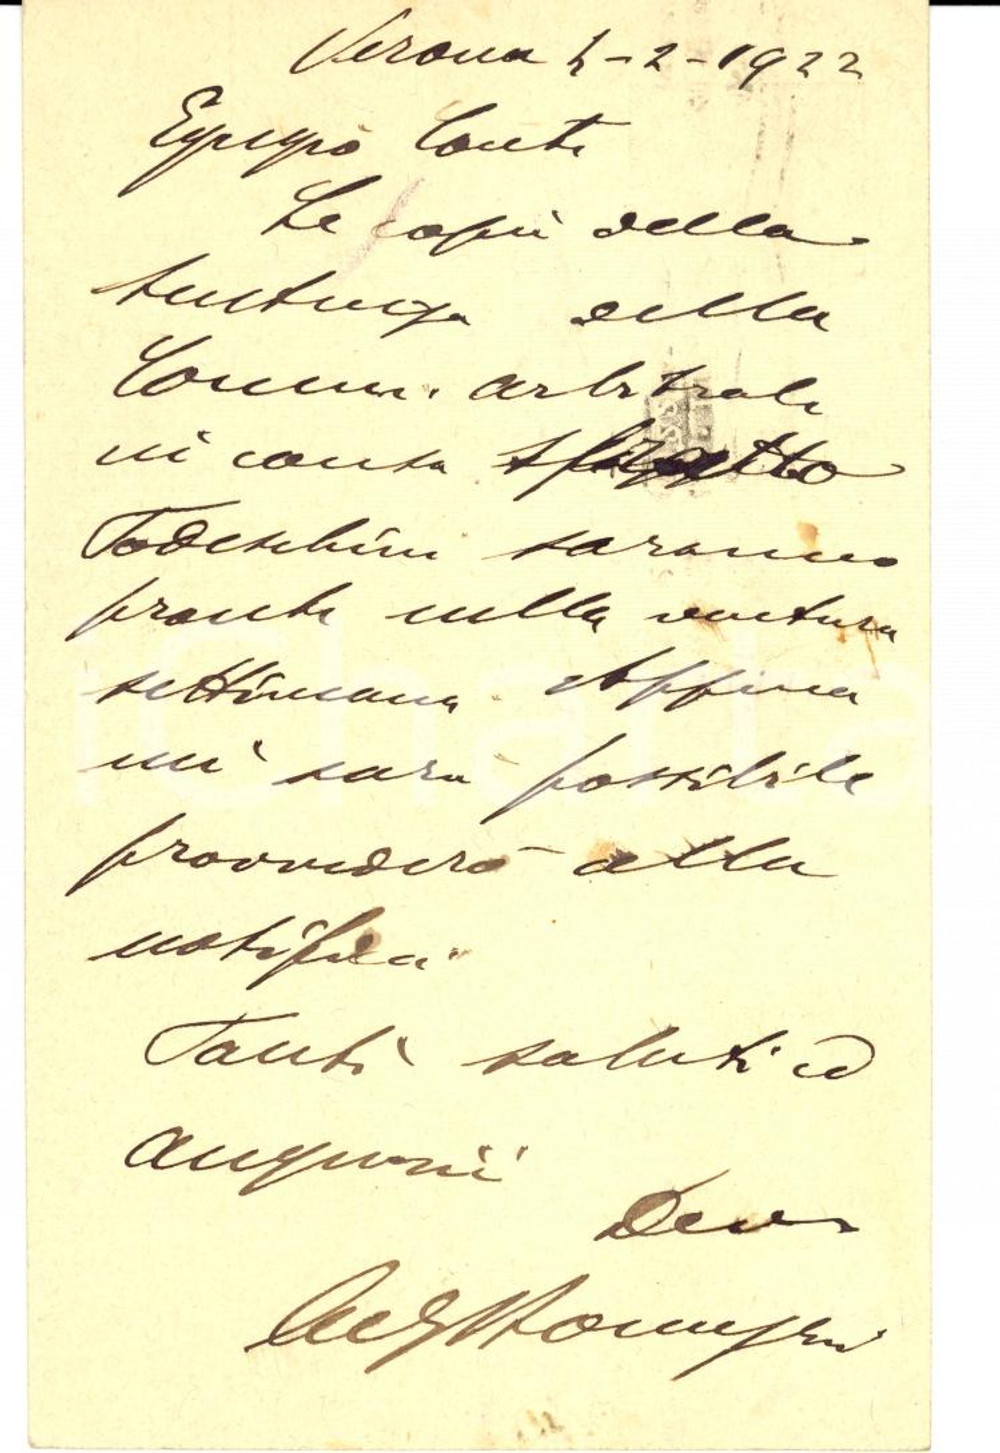 Verona 2-2-1922
Egregio Conte
Le copie della
sentenza della
Comm. arbitrale
in causa
Todeschini saranno
pronte nella ventura
settimana. Appena
mi sarà possibile
provvederò alla
notifica.
Tanti saluti ed
auguri
Dev